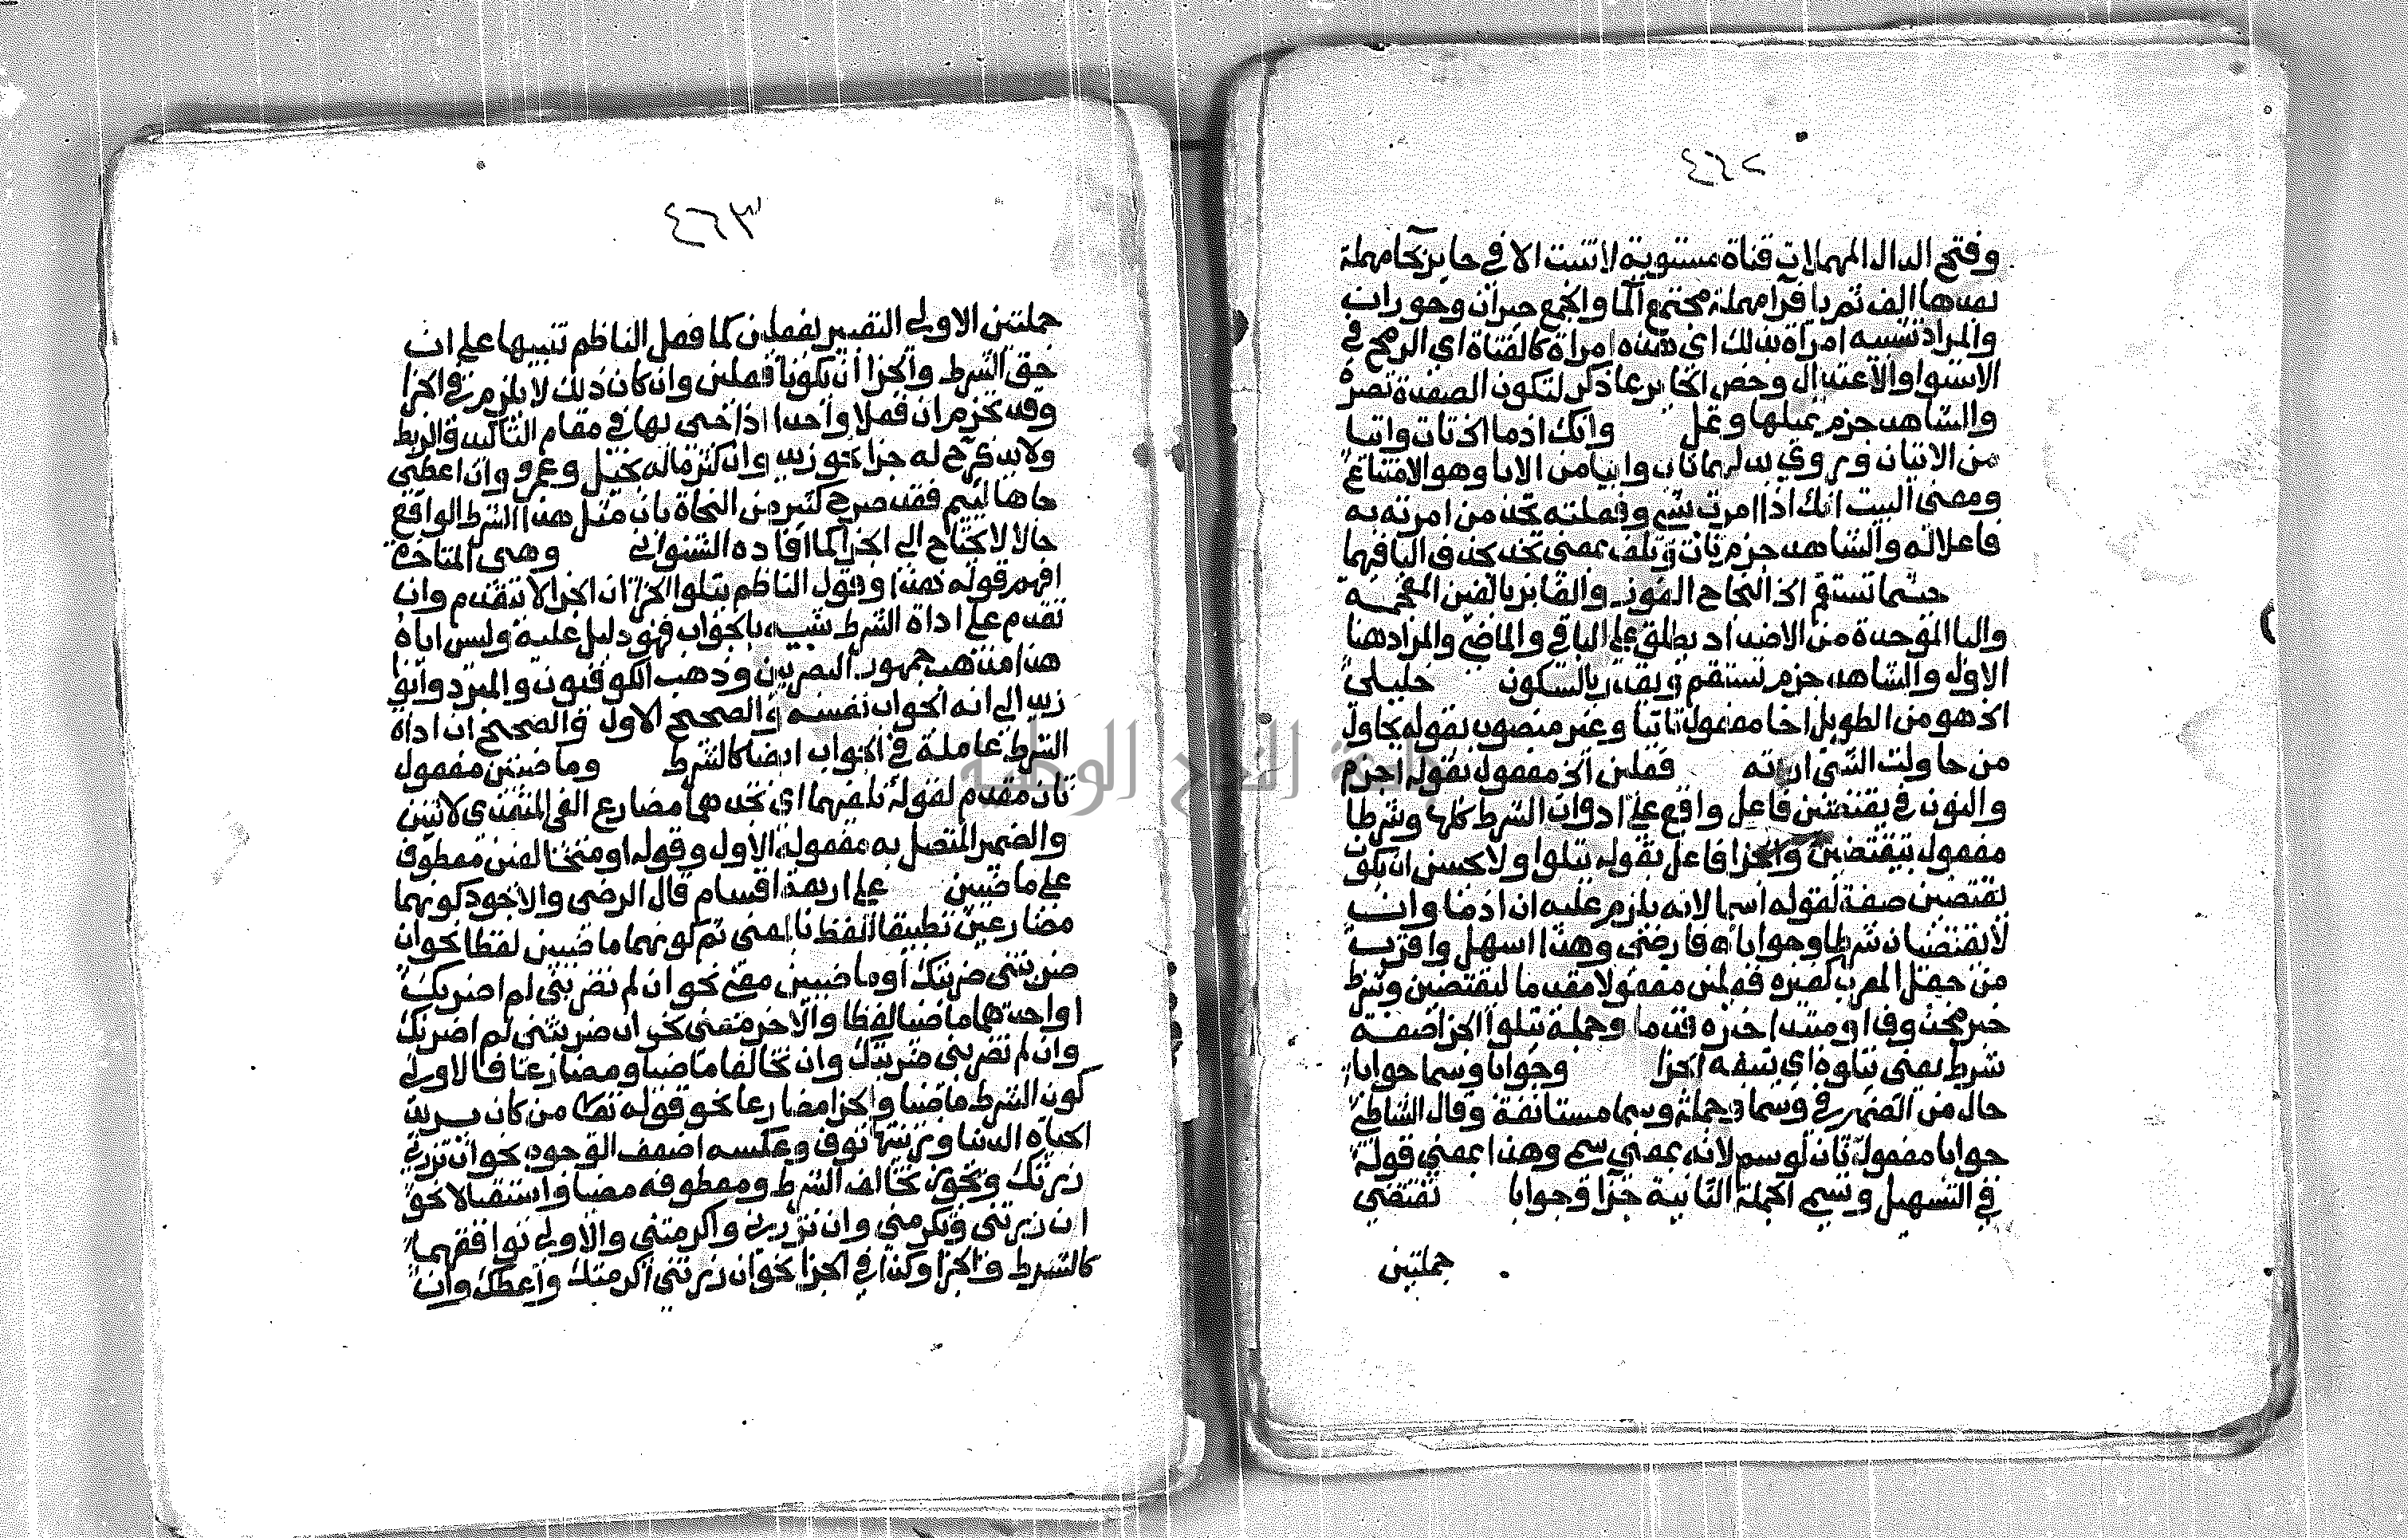 ٤٦٢
وفتح الدال المهملات قناة مستوية لا تنبت الا في حاير بحا مهملة
بعدها الف ثم يا فرا مهملة مجتمع الما والجمع حيران وحوران
والمراد تشبيه امراة بذلك اي هذه امراة كالقناة اي الرمح في
الاستوا والاعتدال وخص الحاير بما ذكر لتكون الصعدة نضرة
والشاهد جزم يميلها وتمل وانك اذما الخ تات واتيا
من الاتيان ويروي بدلهما تاب وابيا من الابا وهو الامتناع
ومعنى البيت انك اذا امرت بشي وفعلته تجد من امرته به
فاعلا له والشاهد جزم تات وتلف بمعنى تجد بحذف اليا فيهما
حيثما تستقم الخ النجاح الفوز والغابر بالغين المعجمة
والبا الموحدة من الاضداد يطلق على الباقي والماضي والمراد هنا
الاول والشاهد جزم تستقم ويقدر بالسكون خليلي
الخ هو من الطويل اخا مفعول تاتيا وغير منصوب بقوله يحاول
من حاولت الشي اردته فعلين الخ مفعول بقوله اجزم
والنون في يقتضين فاعل واقع على ادوات الشرط كلها وشرطا
مفعول بيقتضين والجزا فاعل بقوله يتلوا ولا يحسن ان يكون
يقتضين صفة لقوله اسما لانه يلزم عليه ان اذما وان
لا يقتضيان شرطا وجوابا اه فارضى وهذا اسهل واقرب
من جعل المعرب كغيره فعلين مفعولا مقدما ليقتضين وشرط
خبر محذوف او مبتدا خبره قدما وجملة يتلوا الجزا صفة
شرط بمعنى يتلوه اي يتبعه الجزا وجوابا وسما جوابا
حال من الضمير في وسما وجملة وسما مستانفة وقال الشاطبي
جوابا مفعول ثان لوسم لانه بمعنى سمى وهذا بمعنى قوله
في التسهيل وتسمى الجملة الثانية جزا وجوابا تقتضي
جملتين
٤٦٣
جملتين الاولى التعبير بفعلين كما فعل الناظم تنبيها على ان
حق الشرط والجزا ان يكونا فعلين وان كان ذلك لا يلزم في الجزا
وقد تجزم ان فعلا واحدا اذا جى بها في مقام التاكيد والربط
ولا يذكر ح له جزا نحو زيد وان كثر ماله بخيل وعمرو وان اعطى
جاها ليم فقد صرح كثير من النحاة بان مثل هذا الشرط الواقع
حالا لا يحتاج الى الجزا كما افاده الشنواني وهى المتاخرة
افهم قوله بعد او وقول الناظم يتلوا الجزا ان الجزا لا يتقدم وان
تقدم على اداة الشرط شبيه بالجواب فهو دليل عليه وليس اياه
هذا مذهب جمهور البصريين وذهب الكوفيون والمبرد وابو
زيد الى انه الجواب نفسه والصحيح الاول والصحيح ان اداة
الشرط عاملة في الجواب ايضا كالشرط وماضيين مفعول
ثان مقدم لقوله تلفيهما اي تجدهما مضارع الفى المتعدى لاثنين
والضمير المتصل به مفعوله الاول وقوله او متخالفين معطوف
على ماضيين على اربعة اقسام قال الرضى والاجود كونهما
مضارعين تطبيقا للفظ بالمعنى ثم كونهما ماضيين لفظا نحو ان
ضربتنى ضربتك او ماضيين معنى نحو ان لم تضربنى لم اضربك
او احدهما ماضيا لفظا والاخر معنى نحو ان ضربتنى لم اضربك
وان لم تضربنى ضربتك وان تخالفا ماضيا ومضارعا فالاولى
كون الشرط ماضيا والجزا مضارعا نحو قوله تعالى من كان يريد
الحياة الدنيا وزينتها نوف وعكسه اضعف الوجوه نحو ان تزرني
زرتك ويجوز تخالف الشرط ومعطوفه مضيا واستقبالا نحو
ان زرتنى وتكرمني وان تزرني واكرمتنى والاولى توافقهما
كالشرط والجزا وكذا في الجزا نحو ان زرتنى اكرمتك واعطك وان